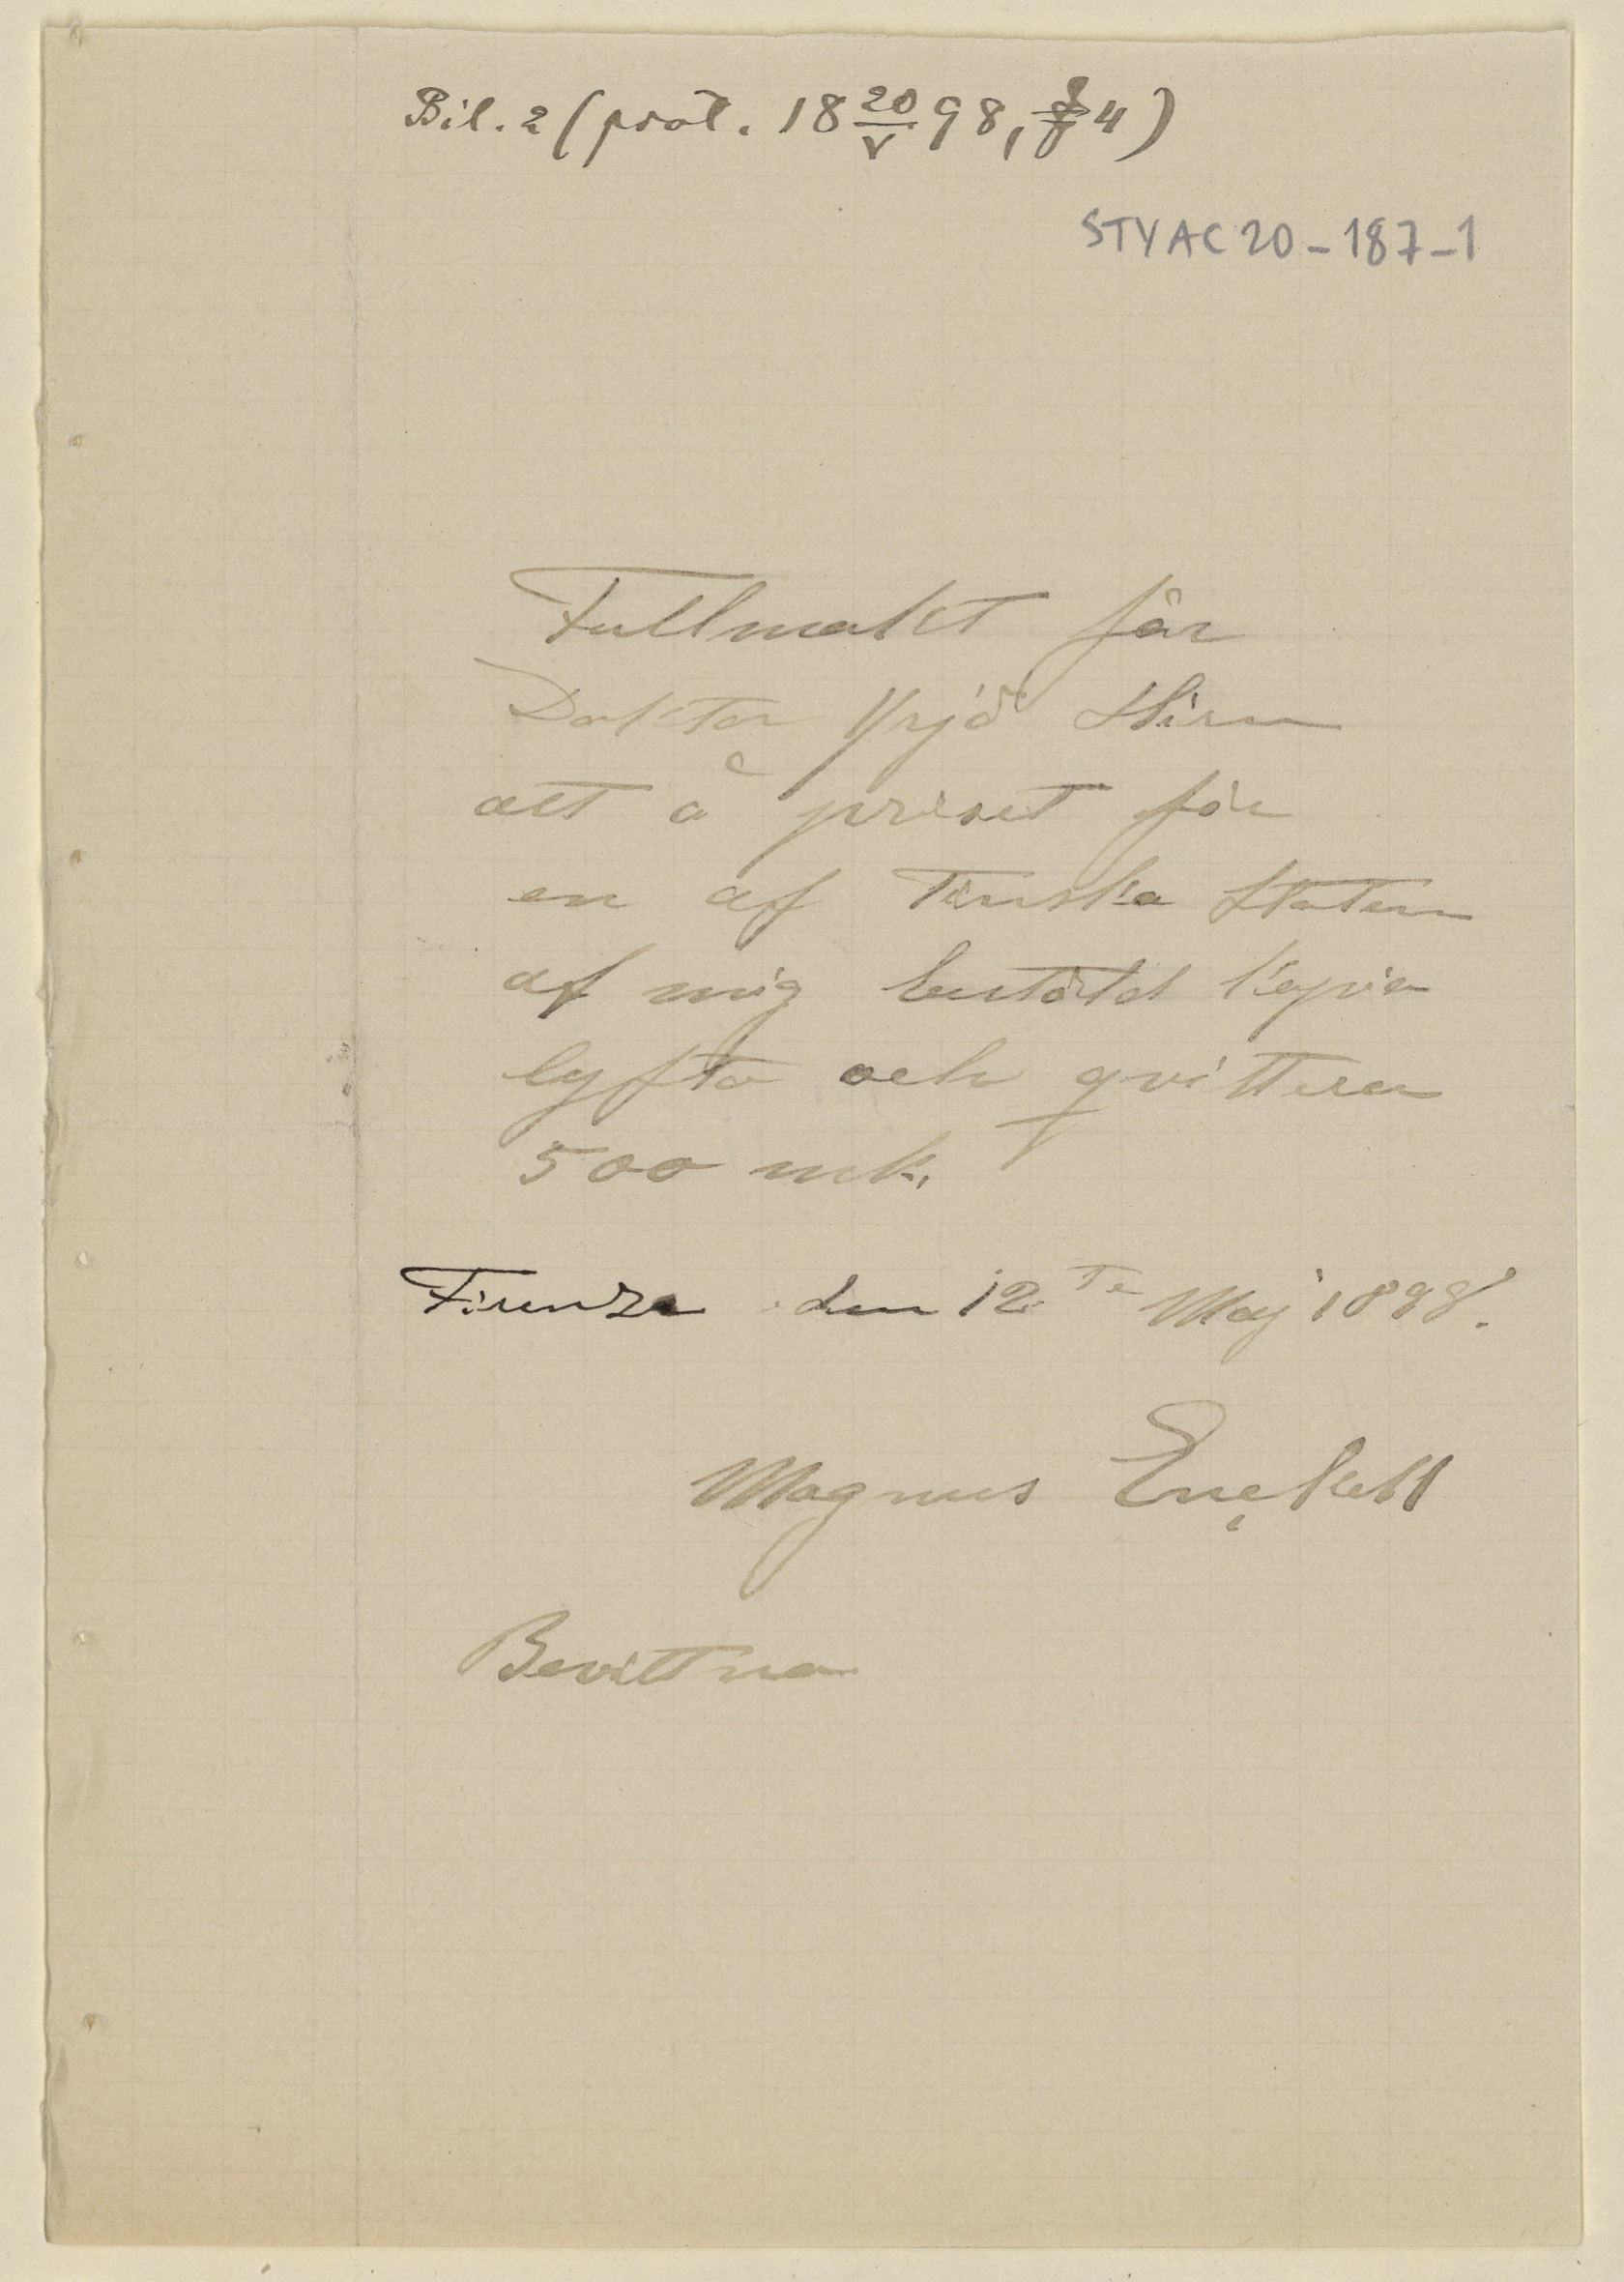 Bil. 2 (prot. 18 20/V 98, § 4)
STYAC20-187-1
Fullmakt för
Doktor Yrjö Hirn
att å priset för
en af Finska Staten
af mig bestäld kopia
lyfta och qvittera
500 mk.
Firenze den 12te Maj 1898.
Magnus Enckell
Bevittna